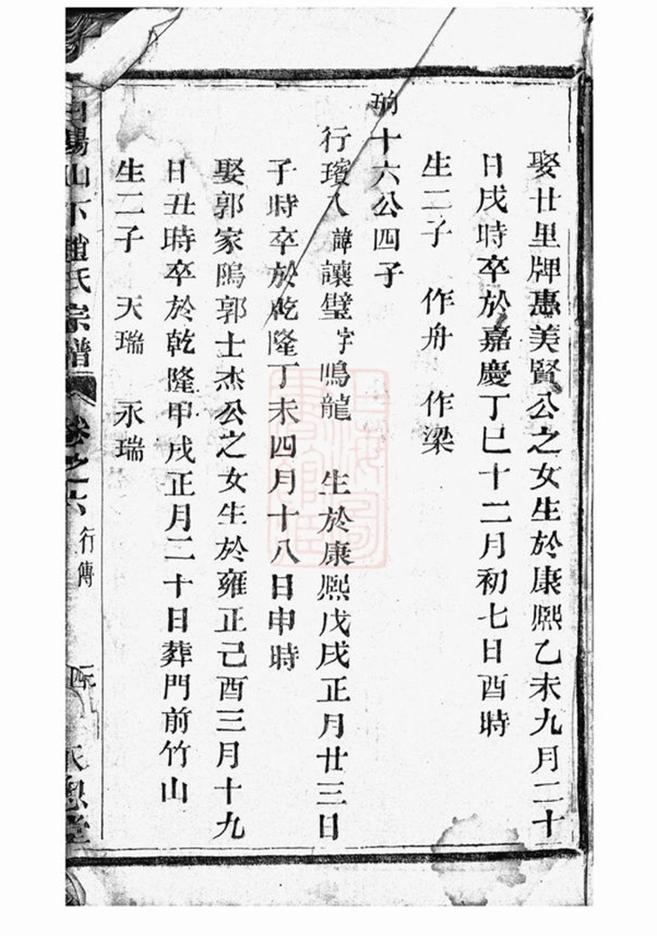 娶廿里牌惠美賢公之女生於康熙乙未九月二十
日戌時卒於嘉慶丁巳十二月初七日酉時
生二子 作舟 作梁
珦十六公四子
行璸八諱讓璧字鳴龍 生於康熙戊戌正月廿三日
子時卒於乾隆丁未四月十八日申時
娶郭家隝郭士杰公之女生於雍正己酉三月十九
日丑時卒於乾隆甲戌正月二十日葬門前竹山
生二子 天瑞 永瑞
山下趙氏宗譜 卷之六 行傳
上海圖書館藏